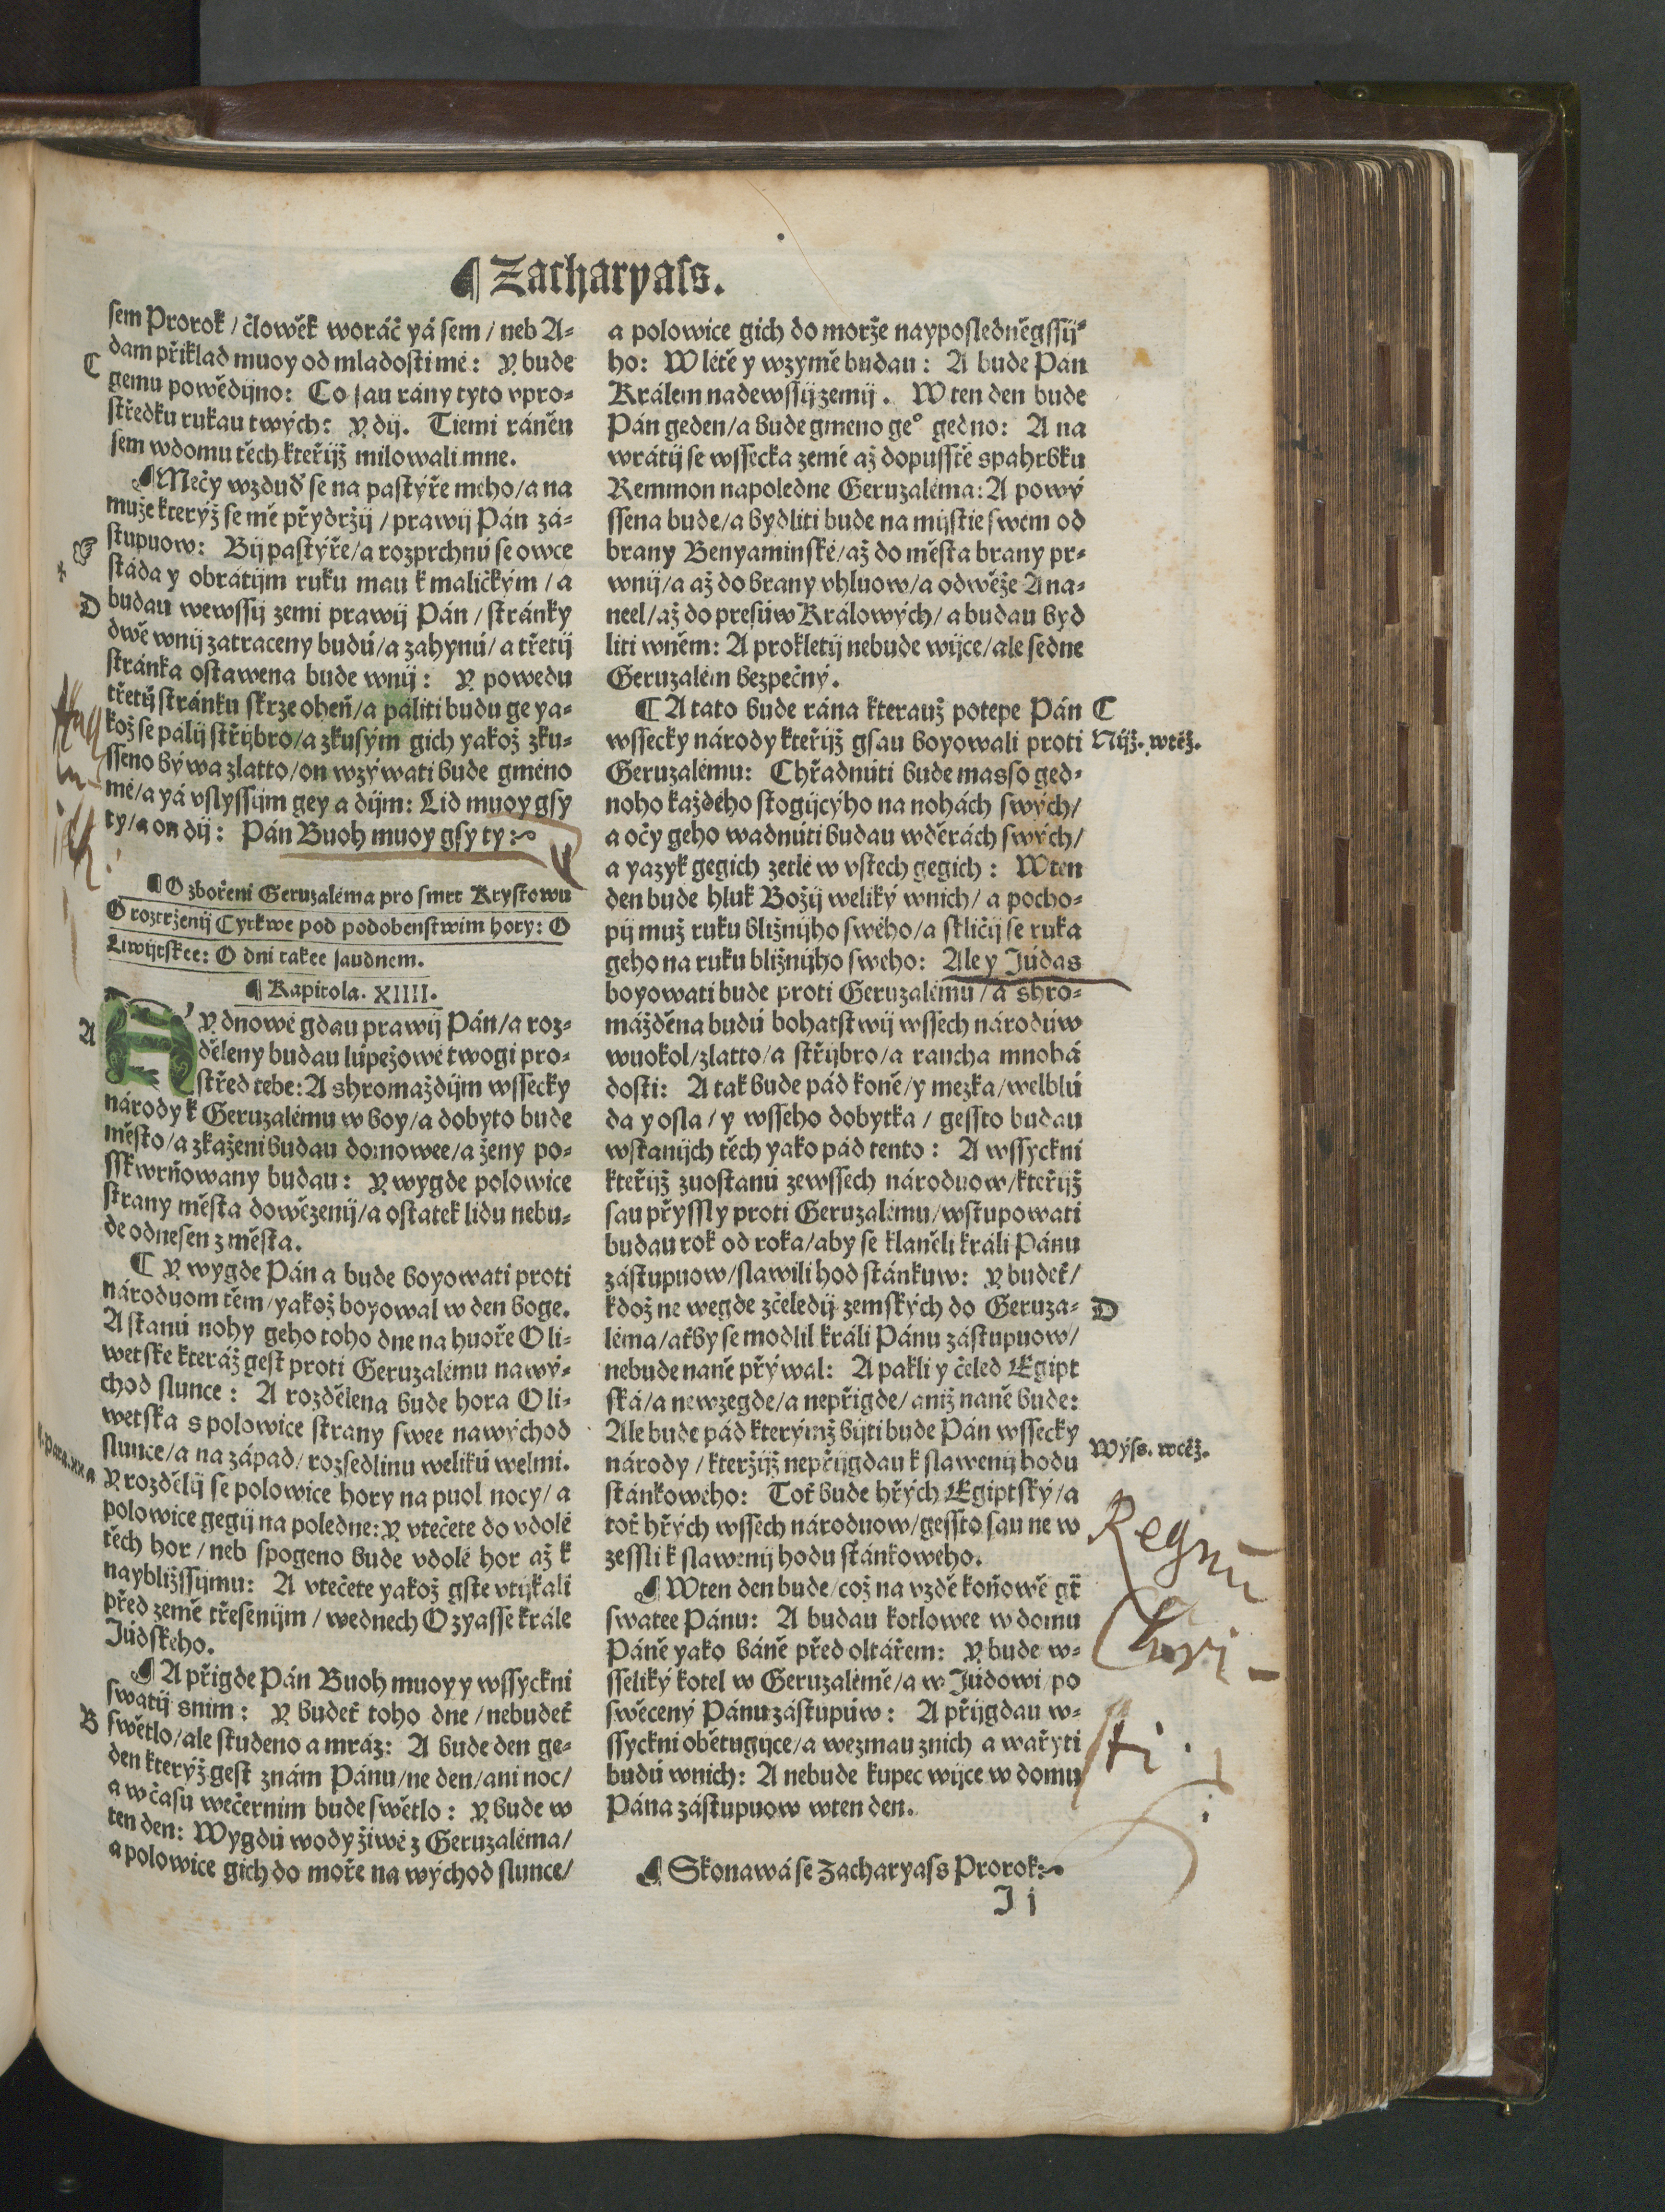 ¶ Zacharyaſs.
ſem Prorok / člowěk woráč yá ſem / neb A⸗
dam přiklad muoy od mladoſti mé: Y bude
C
gemu powědijno: Co ſau rány tyto vpro⸗
ſtředku rukau twých: Y dij. Tiemi ráněn
ſem wdomu těch kteřijž milowali mne.
¶ Mečy wzduď ſe na paſtýře mého/a na
muže kterýž ſe mě přydržij / prawij Pán zá⸗
ſtupuow: Bij paſtýře/a rozprchnú ſe owce
ſtáda y obrátijm ruku mau k maličkým / a
D
budau wewſſij zemi prawij Pán / ſtránky
dwě wnij zatraceny budú/a zahynú/ a třetij
ſtránka oſtawena bude wnij: Y powedu
třetij ſtránku ſkrze oheň/a páliti budu ge ya⸗
kož ſe pálij ſtřijbro/a zkuſým gich yakož zku⸗
ſſeno býwa zlatto/on wzýwati bude gméno
mé/a yá vſlyſſijm gey a dijm: Lid muoy gſy
ty/a on dij: Pán Buoh muoy gſy ty:
¶ O zbořeni Geruzaléma pro ſmrt Kryſtowu
O roztrženij Cyrkwe pod podobenſtwim hory: O
Liwijtſkee: O dni takee ſaudnem.
¶ Kapitola. XIIII.
A
AY dnowé gdau prawij Pán/a roz⸗
děleny budau lúpežowé twogi pro⸗
ſtřed tebe: A shromaždijm wſſecky
národy k Geruzalému w boy/a dobyto bude
měſto/a zkaženi budau domowee/a ženy po⸗
ſſkwrňowany budau: Y wygde polowice
ſtrany měſta dowězenij/a oſtatek lidu nebu⸗
de odneſen z měſta.
C Y wygde Pán a bude boyowati proti
národuom těm/yakož boyowal w den boge.
A ſtanú nohy geho toho dne na huoře Oli⸗
wetſke kteráž geſt proti Geruzalému na wý⸗
chod ſlunce: A rozdělena bude hora Oli⸗
wetſka s polowice ſtrany ſwee nawýchod
ſlunce/a na západ/ rozſedlinu welikú welmi.
Y rozdělij ſe polowice hory na puol nocy/ a
polowice gegij na poledne: Y vtečete do vdolé
těch hor / neb ſpogeno bude vdolé hor až k
naybližſſijmu: A vtečete yakož gſte vtijkali
před země třeſenijm / wednech Ozyaſſe krále
Júdſkého.
¶ A přigde Pán Buoh muoy y wſſyckni
ſwatij snim: Y budeť toho dne / nebudeť
B
ſwětlo/ale ſtudeno a mráz: A bude den ge⸗
den kterýž geſt znám Pánu/ne den/ani noc/
a wčaſu wečernim bude ſwětlo: Y bude w
ten den: Wygdú wody žiwé z Geruzaléma/
a polowice gich do moře na wýchod ſlunce/
a polowice gich do morže naypoſledněgſſij⸗
ho: W létě y wzymě budau: A bude Pán
Králem nadewſſij zemij. W ten den bude
Pán geden/a bude gmeno ge° gedno: A na
wrátij ſe wſſecka země až dopuſſtě spahrbku
Remmon napoledne Geruzaléma: A powý
ſſena bude/a bydliti bude na mijſtie ſwém od
brany Benyaminſké/až do měſta brany pr⸗
wnij/a až do brany vhluow/a odwěže Ana⸗
neel/až do preſúw Králowých/ a budau byd
liti wněm: A prokletij nebude wijce/ale ſedne
Geruzalém bezpečný.
C A tato bude rána kterauž potepe Pán
C
wſſecky národy kteřijž gſau boyowali proti
Nijž. wtéž.
Geruzalému: Chřadnúti bude maſſo ged⸗
noho každého ſtogijcýho na nohách ſwých/
a očy geho wadnúti budau wděrách ſwých/
a yazyk gegich zetlé w vſtech gegich: Wten
den bude hluk Božij weliký wnich/ a pocho⸗
pij muž ruku bližnijho ſwého/a ſkličij ſe ruka
geho na ruku bližnijho ſweho: Ale y Júdas
boyowati bude proti Geruzalému/a shro⸗
mážděna budú bohatſtwij wſſech národúw
wuokol/zlatto/a ſtřijbro/a raucha mnohá
doſti: A tak bude pád koně/y mezka/welblú
da y oſla / y wſſeho dobytka / geſſto budau
wſtanijch těch yako pád tento: A wſſyckni
kteřijž zuoſtanú zewſſech národuow/kteřijž
ſau přyſſly proti Geruzalému/wſtupowati
budau rok od roka/aby ſe klaněli králi Pánu
záſtupuow/ſlawili hod ſtánkuw: Y budeť/
kdož ne wegde zčeledij zemſkých do Geruza⸗
D
léma/aťby ſe modlil králi Pánu záſtupuow/
nebude naně přýwal: A pakli y čeled Egipt
ſká/a newzegde/a nepřigde/ aniž naně bude:
Ale bude pád kterýmž bijti bude Pán wſſecky
Wýſs. wtéž.
národy / kteržijž nepřijgdau k ſlawenij hodu
ſtánkowého: Toť bude hřých Egiptſký/a
toť hřých wſſech národuow/geſſto ſau ne w
zeſſli k ſlawenij hodu ſtánkoweho.
¶ Wten den bude/což na vzdě koňowě gt̄
ſwatee Pánu: A budau kotlowee w domu
Páně yako báně před oltářem: Y bude w⸗
ſſeliký kotel w Geruzalémě/a w Júdowi po
ſwěcený Pánu záſtupúw: A přijgdau w⸗
ſſyckni obětugijce/a wezmau znich a wařyti
budú wnich: A nebude kupec wijce w domu
Pána záſtupuow wten den.
Regnū
Chri-
ſti.
¶ Skonawá ſe Zacharyaſs Prorok:
I i